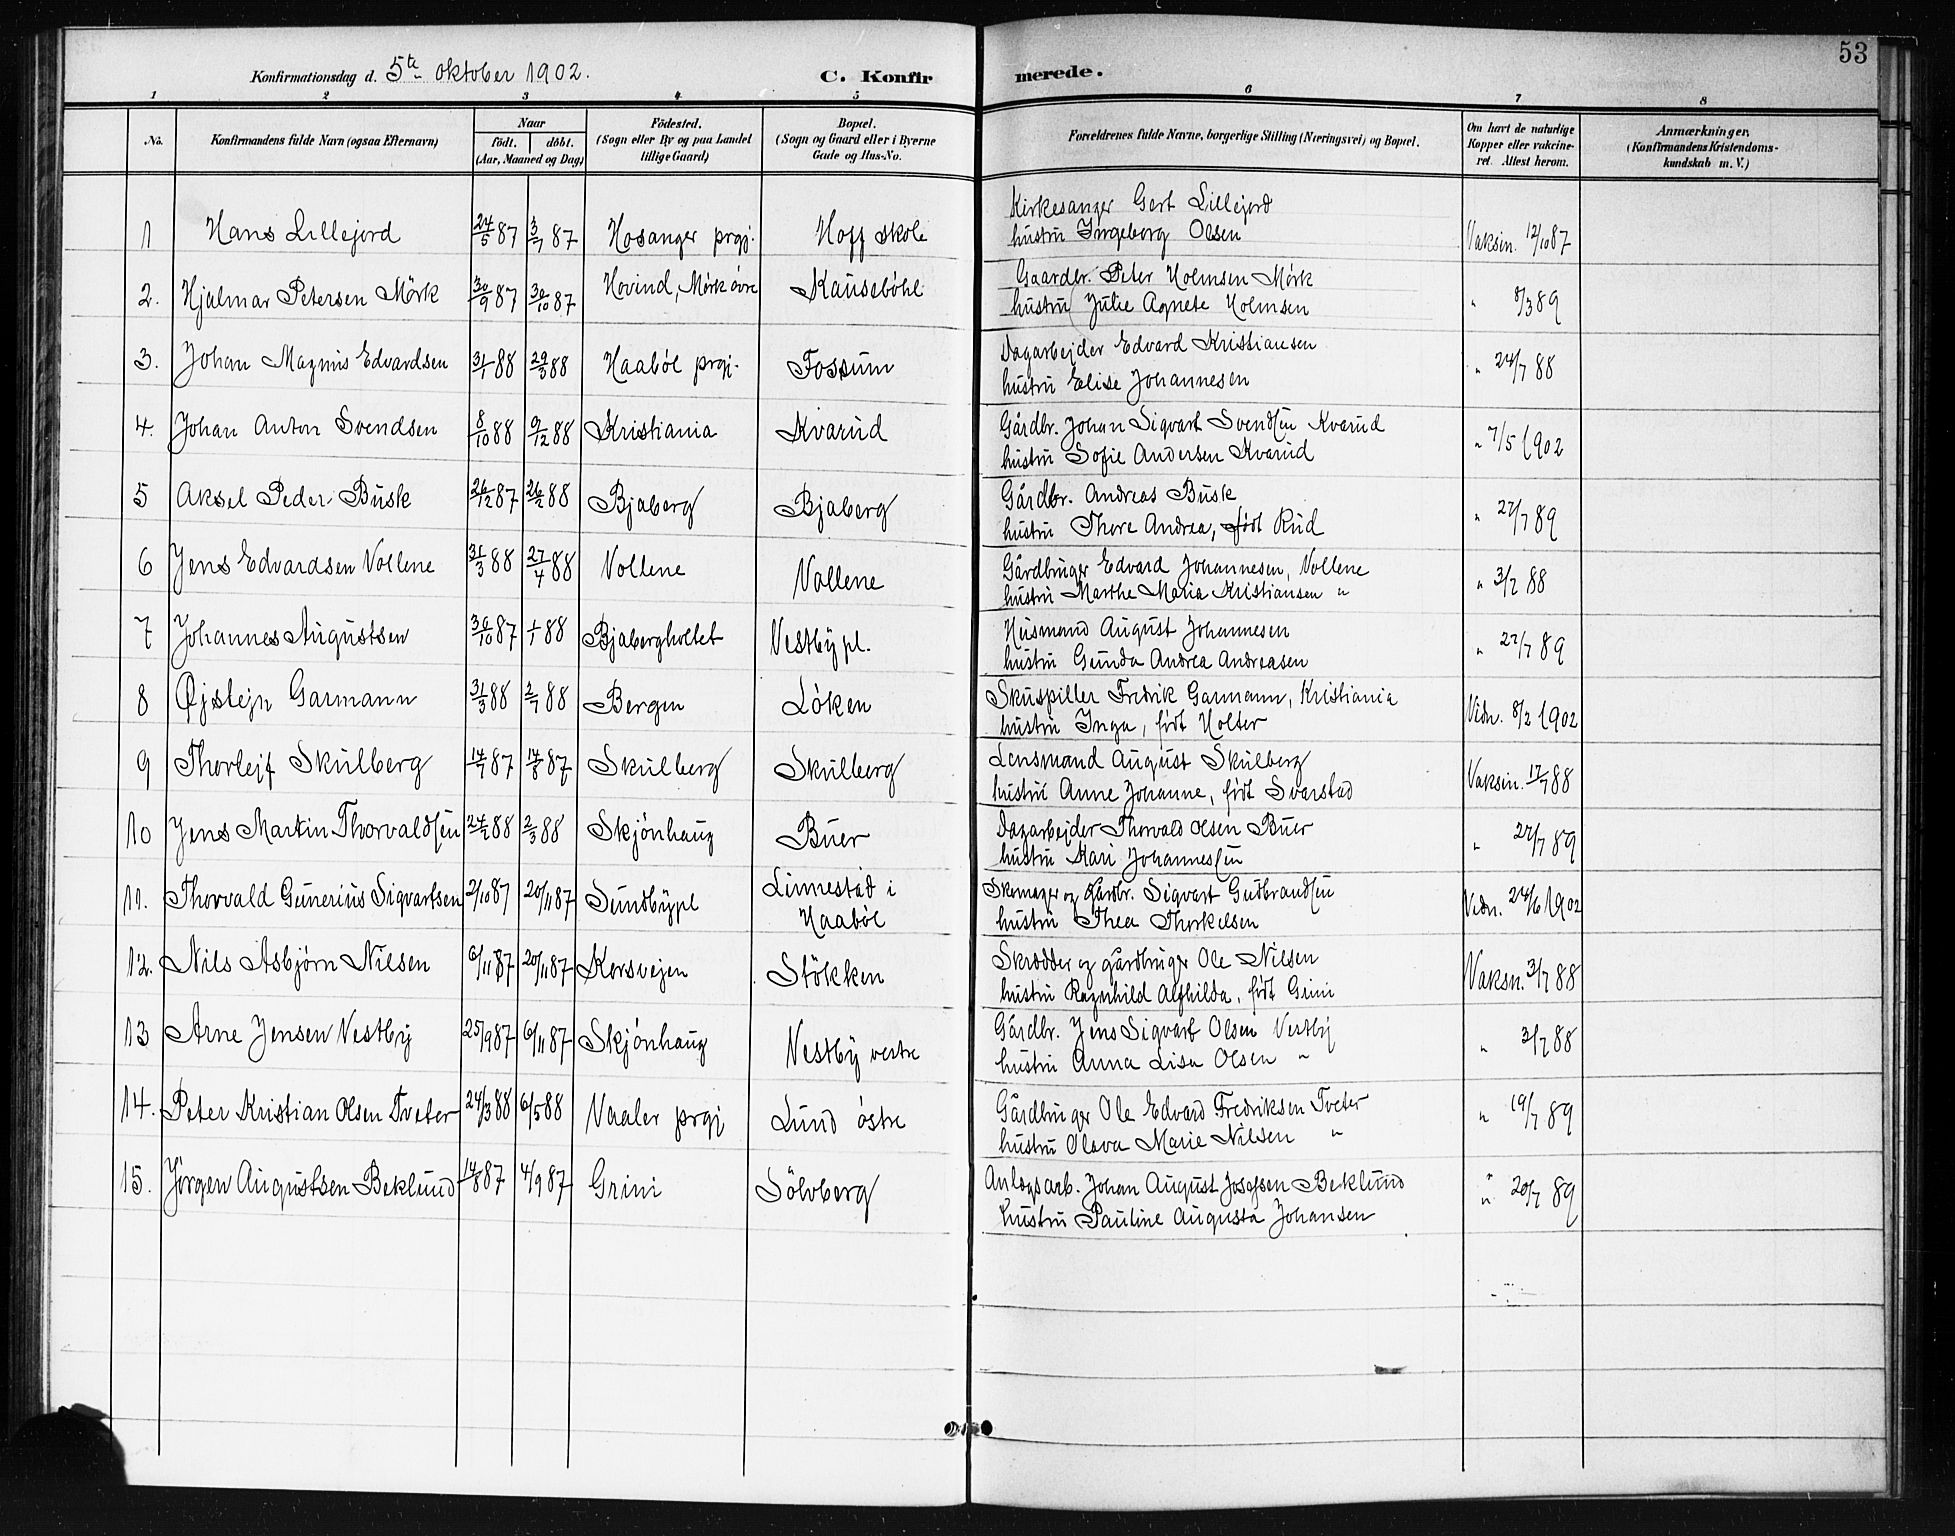 53
Konfirmationsdag d. 5te oktober 1902.
C. Konfirmerede.
1 2 3 4 5 6 7 8
No.
Konfirmandens fulde Navn (ogsaa Efternavn)
Naar
födt. döbt.
(Aar, Maaned og Dag)
Födested.
(Sogn eller By og paa Landet
tillige Gaard)
Bopæl.
(Sogn og Gaard eller i Byerne
Gade og Hus-No.
Forældrenes fulde Navne, borgerlige Stilling (Næringsvei) og Bopæl.
Om havt de naturlige
Kopper eller vakcine-
ret. Attest herom.
Anmærkninger.
(Konfirmandens Kristendoms-
kundskab m. V.)
1 Hans Lillejord 24/5 87 3/7 87 Hosanger prgj. Hoff skole Kirkesanger Gert Lillejord
hustru Ingeborg Olsen Vaksin. 12/10 87
2. Hjalmar Petersen Mörk 30/9 87 30/10 87 Hovind, Mørk övre Kausebøhl Gaardbr. Peter Holmsen Mörk
hustru Julie Agnete Holmsen " 8/3 89
3. Johan Magnus Edvardsen 31/1 88 29/3 88 Haabøl prgj. Fossum Dagarbejder Edvard Kristiansen
hustru Elise Johannesen " 24/7 88
4. Johan Anton Svendsen 8/10 88 9/12 88 Kristiania Kvarud Gårdbr. Johan Sigvart Svendsen Kvarud
hustru Sofie Andersen Kvarud " 7/5 1902
5 Aksel Peder Busk 26/12 87 26/2 88 Bjaberg Bjaberg Gårdbr. Andreas Busk
hustru Thore Andrea, født Rud " 27/7 89
6 Jens Edvardsen Vollene 31/3 88 27/4 88 Vollene Vollene Gårdbruger Edvard Johannesen, Vollene
hustru Marthe Maria Kristiansen " " 3/7 88
7 Johannes Augustsen 30/10 87 1/1 88 Bjabergholtet Vestby pl. Husmand August Johannesen
hustru Gunda Andrea Andreasen " 27/7 89
8 Øjstejn Garmann 31/3 88 2/7 88 Bergen Löken Skuspiller Fredrik Garmann, Kristiania
hustru Inga, født Holter Vidn. 8/2 1902
9 Thorlejf Skulberg 14/7 87 14/8 87 Skulberg Skulberg Lensmand August Skulberg
hustru Anne Johanne, født Svarstad Vaksin. 17/7 88
10 Jens Martin Thorvaldsen 24/2 88 2/3 88 Skjönhaug Buer Dagarbejder Thorvald Olsen Buer
hustru Kari Johannessen " 27/7 89
11. Thorvald Gunerius Sigvartsen 2/10 87 20/11 87 Sundbypl Linnestad i
Haabøl Skomager og Gårdbr. Sigvart Gudbrandsen
hustru Thea Thorkelsen Vidn. 24/6 1902
12. Nils Asbjørn Nilsen 6/11 87 20/11 87 Korsvejen Stökken Skrædder og gårdbruger Ole Nilsen
hustru Ragnhild Alfhilda, født Grini Vaksn. 3/7 88
13 Arne Jensen Vestby 25/9 87 6/11 87 Skjönhaug Vestby vestre Gårdbr. Jens Sigvart Olsen Vestby
hustru Anna Lisa Olsen " " 3/7 88
14. Peter Kristian Olsen Tveter 24/3 88 6/5 88 Vaaler prgj Lund östre Gårdbruger Ole Edvard Fredriksen Tveter
hustru Olava Marie Nilsen " " 19/7 89
15. Jørgen Augustsen Beklund 14/8 87 4/9 87 Grini Sölvberg Anlegsarb. Johan August Josefsen Beklund
hustru Pauline Augusta Johansen " 20/7 89